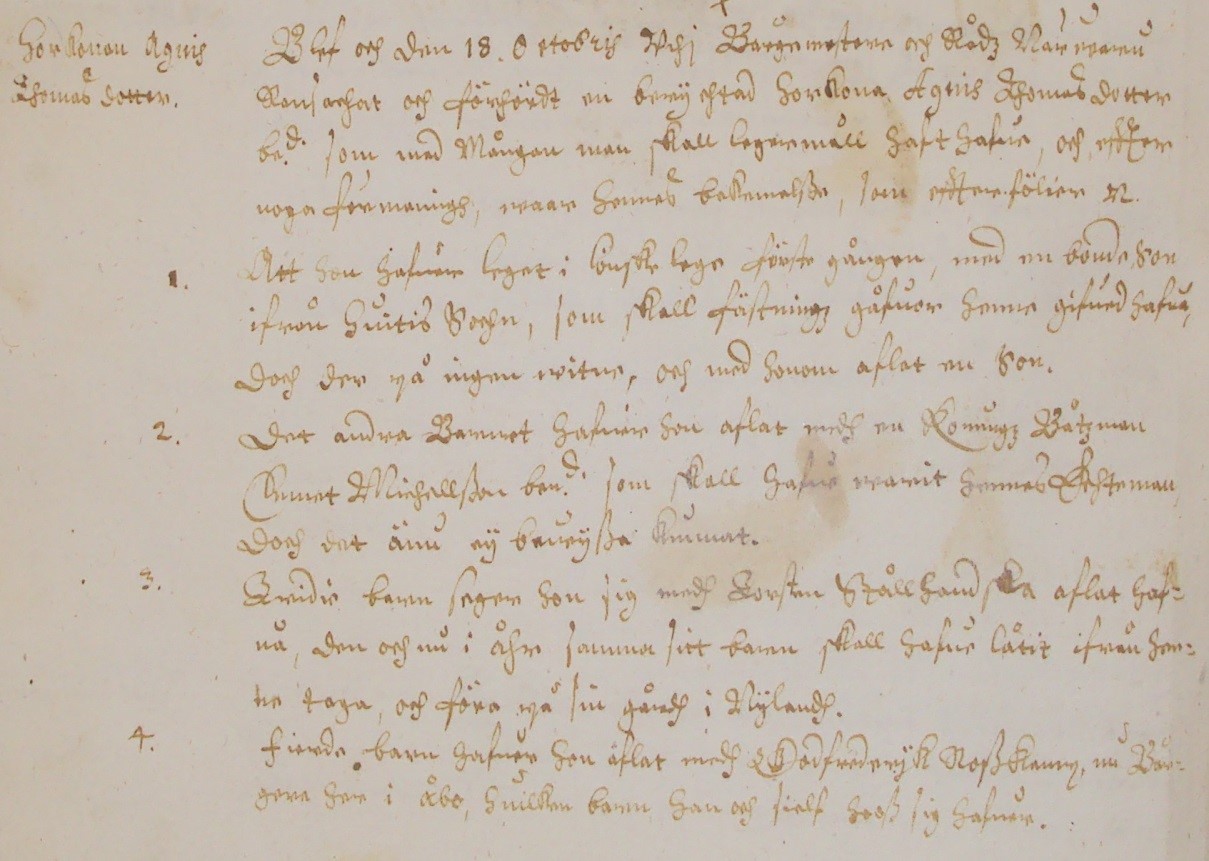 Horkonon Agnis
Thomas dotter.
Blef och den 18. Octobris Vthj Borgemestere och Rådz Närwaru
Ransachat och förhördt en berychtad horkona Agnis Thomas dotter
be:d som med Mången man skall legremåll haft hafue, och effter
noga förmaningh, waar hennes bekennelsse, som effterföllier
1. Att hon hafuer leget i lönske lege förste gången, med en bonde Son
ifrån Huitis Sochn, som skall fästningz gåfuor henne gifued hafua,
doch der på ingen witne, och med honom aflat en Son.
2. Det andra Barnet hafuer hon aflat medh en Konungz Båtzman
Clemet Michellsson ben:d som skall hafue warit hennes Echteman,
doch det ännu ey beweyssa kunnat.
3. Tridie barn seger hon sig medh Torsten Stållhandska aflat haf-
ua, den och nu i åhr samma sitt barn skall hafue låtit ifrån hen-
ne taga, och föra på sin gårdh i Nylandh.
4. Fierde barn hafuer hon aflat medh Godfrederyk Rossklamp, nu Bor-
gere her i Åbo, huilken barn han och sielf hooss sig hafuer.